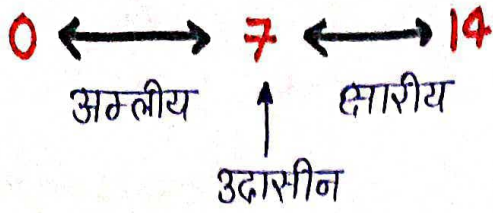 0 7 14
अम्लीय क्षारीय
उदासीन